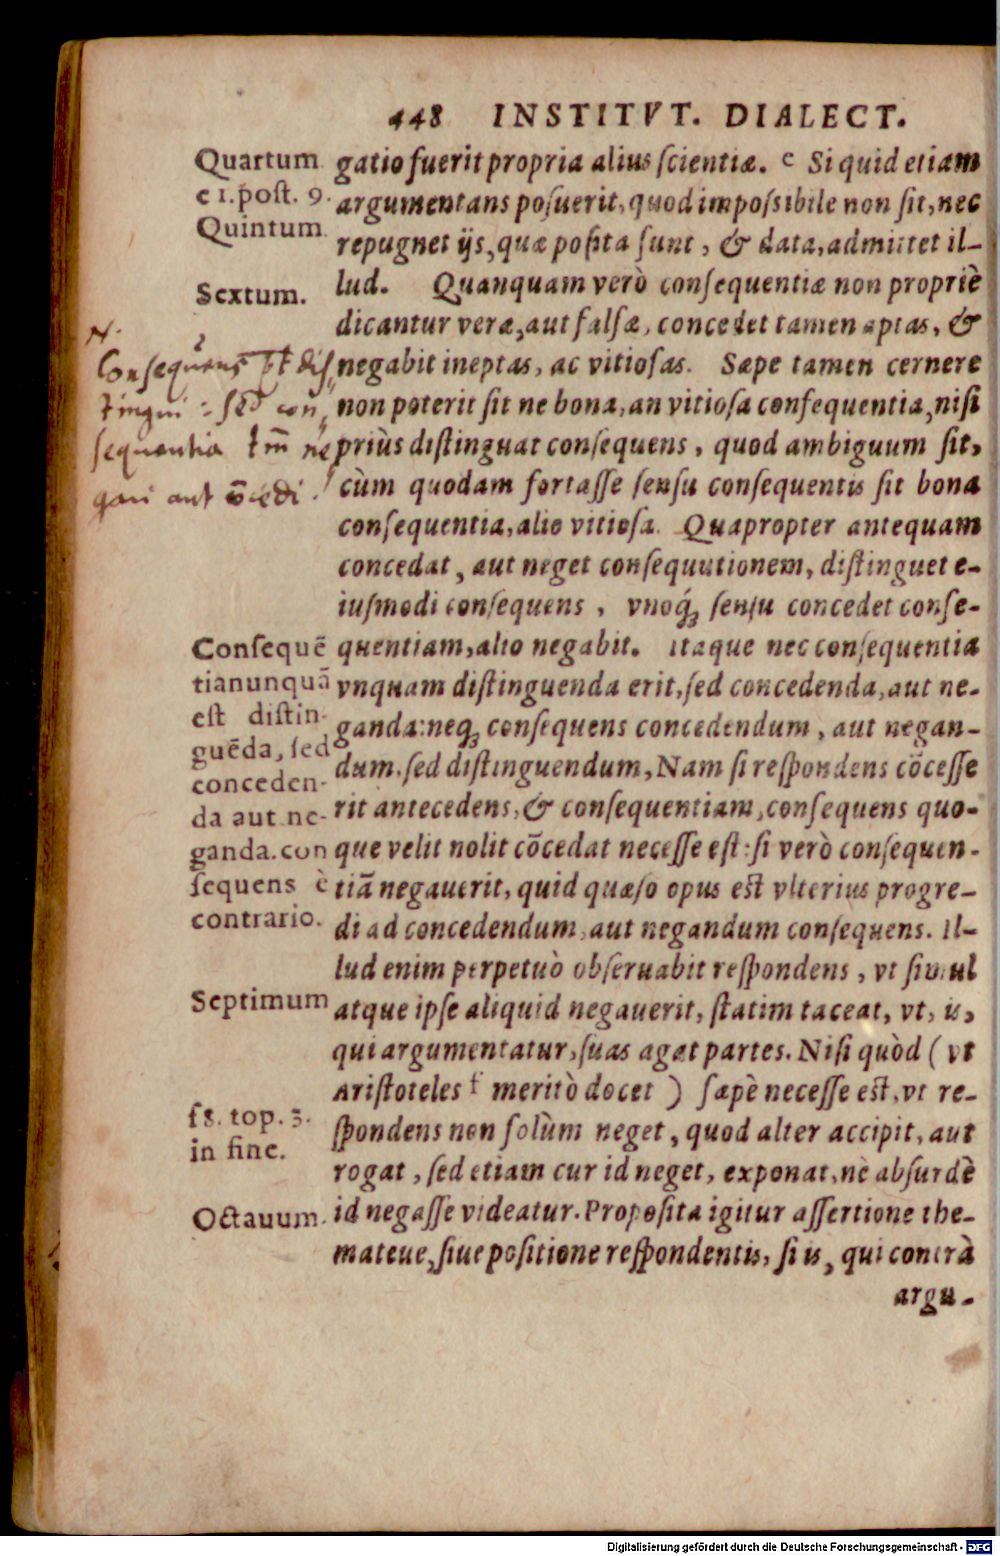 448 INSTITVT. DIALECT.
Quartum
e 1. post. 9.
Quintum
Sextum.
gatio fuerit propria alius scientiæ. e Si quid etiam
argumentans posuerit, quod impossibile non sit, nec
repugnet ijs, quæ posita sunt, & data, admittet il-
lud. Quanquam verò consequentiæ non propriè
dicantur veræ, aut falsæ, concedet tamen aptas, &
negabit ineptas, ac vitiosas. Sæpe tamen cernere
non poterit sit ne bona, an vitiosa consequentia, nisi
priùs distinguat consequens, quod ambiguum sit,
cùm quodam fortasse sensu consequentis sit bona
consequentia, alio vitiosa. Quapropter antequam
concedat, aut neget consequutionem, distinguet e-
iusmodi consequens, vnoq́ꝫ sensu concedet conse-
quentiam, alio negabit. Itaque nec consequentia
vnquam distinguenda erit, sed concedenda, aut ne-
ganda: neqꝫ consequens concedendum, aut negan-
dum. sed distinguendum, Nam si respondens cõcesse
rit antecedens, & consequentiam, consequens quo-
que velit nolit cõcedat necesse est: si verò consequen-
tiã negauerit, quid quæso opus est vlterius progre-
di ad concedendum, aut negandum consequens. Il-
lud enim perpetuò obseruabit respondens, vt simul
atque ipse aliquid negauerit, statim taceat, vt, is,
qui argumentatur, suas agat partes. Nisi quòd (vt
Aristoteles f meritò docet) sæpè necesse est, vt re-
spondens non solùm neget, quod alter accipit, aut
rogat, sed etiam cur id neget, exponat, nè absurdè
id negasse videatur. Proposita igitur assertione the-
mateue, siue positione respondentis, si is, qui contrà
argu-
N.
Consequens pt dis
tingui: sed con
sequentia tm̄ ne
gari aut ōcedi.
Consequẽ
tia nunquã
est distin-
guẽda, sed
conceden-
da aut ne-
ganda. con
sequens è
contrario.
Septimum
f 8. top. 3.
in fine.
Octauum.
Digitalisierung gefördert durch die Deutsche Forschungsgemeinschaft - DFG